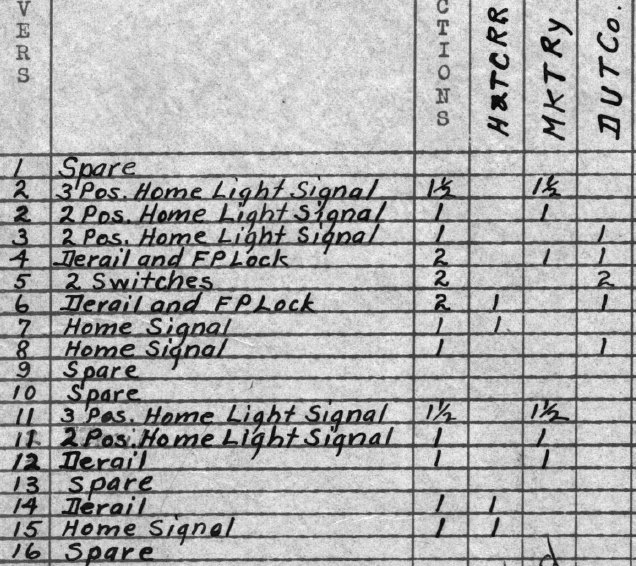 VERS CTIONS H&TCRR MKTRy DUTCo.
1 Spare
2 3 Pos. Home Light Signal 1½ 1½
2 2 Pos. Home Light Signal 1 1
3 2 Pos. Home Light Signal 1 1
4 Derail and FPLock 2 1 1
5 2 Switches 2 2
6 Derail and FPLock 2 1 1
7 Home Signal 1 1
8 Home Signal 1 1
9 Spare
10 Spare
11 3 Pos. Home Light Signal 1½ 1½
11 2 Pos. Home Light Signal 1 1
12 Derail 1 1
13 Spare
14 Derail 1 1
15 Home Signal 1 1
16 Spare